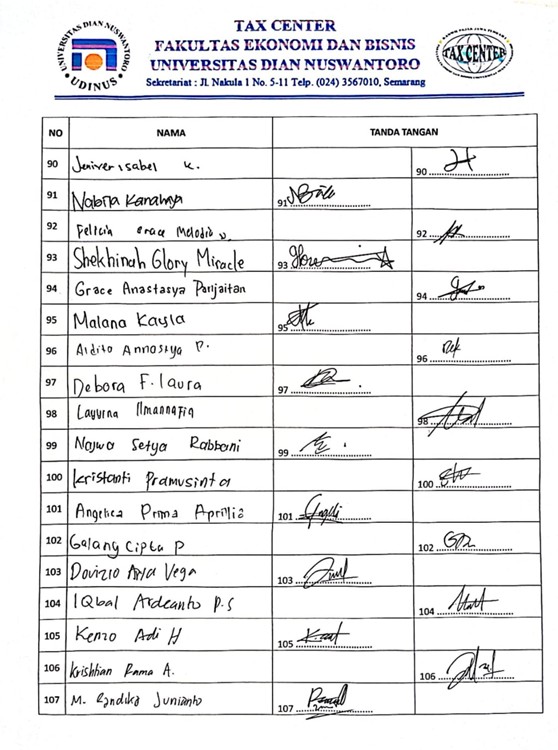 UNIVERSITAS DIAN NUSWANTORO
UDINUS
TAX CENTER
FAKULTAS EKONOMI DAN BISNIS
UNIVERSITAS DIAN NUSWANTORO
Sekretariat : Jl. Nakula 1 No. 5-11 Telp. (024) 3567010, Semarang
TAX CENTER
NO NAMA TANDA TANGAN
90 Jeniver isabel K. 90
91 Nabila 91
92 Felicia Grace Melodia 92
93 Shekhinah Glory Miracle 93
94 Grace Anastasya Panjaitan 94
95 Malana Kayla 95
96 Aldito P. 96
97 Debora F. laura 97
98 98
99 Najwa Setya Rabbani 99
100 Kristanti Pramusinta 100
101 Angelica Prima Aprillia 101
102 Galang Cipta P 102
103 Dovizio Arya Vega 103
104 IQbal Ardeanto P.S 104
105 Kenzo Adi H 105
106 Krishtian Rama A. 106
107 M. Randika Junianto 107